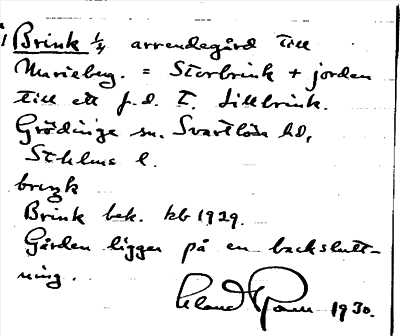 Brink 1/4 arrendegård till
Marieberg. = Storbrink + jorden
till ett f.d. T. Lillbrink.
Grödinge sn. Svartlösa hd,
Sthlms l.
Brink bek. kb 1929.
Gården ligger på en backslutt-
ning.
1930.